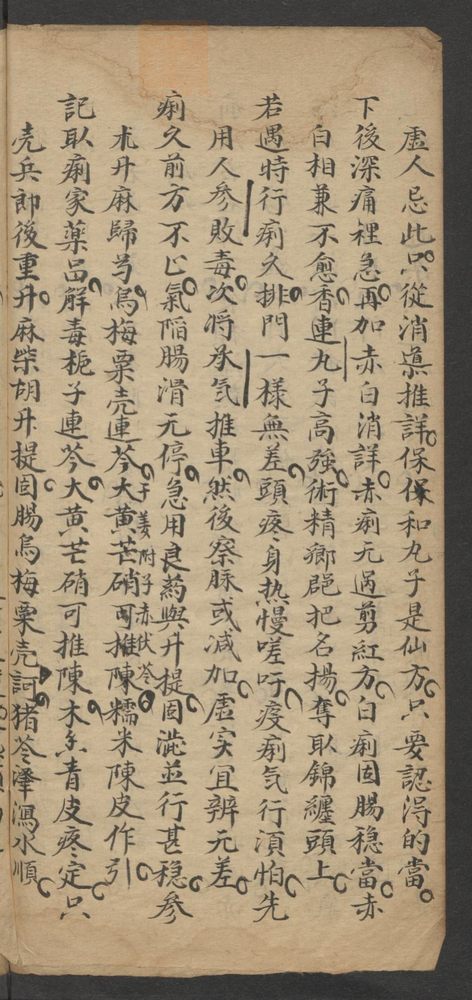 虛人忌此只從消㨋推詳保保和丸子是仙方只要認淂的當
下後深痛裡急再加赤白消詳赤痢无過剪紅方白痢固腸稳當赤
白相兼不愈香連丸子高強術精鄉邑把名揚奪取錦纏頭上
若遇時行痢久排門一樣無差頭疼身熱慢嗟吁疫痢气行湏怕先
用人參敗毒次將承气推車然後察脉或減加虛实宜辨元差
痢久前方不止氣陷腸滑元停急用良药與升提固澁並行甚稳參
朮升麻歸芍烏梅粟壳連芩大黃芒硝可推陳糯米陳皮作引
干姜附子赤伏苓
記取痢家藥品解毒梔子連芩大黃芒硝可推陳木香青皮疼定只
壳兵郎後重升麻柴胡升提固腸烏梅粟壳訶猪苓澤瀉水順